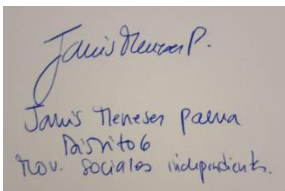 Janis Meneses P.
Janis Meneses Palma
Distrito 6
Mov. Sociales independients.